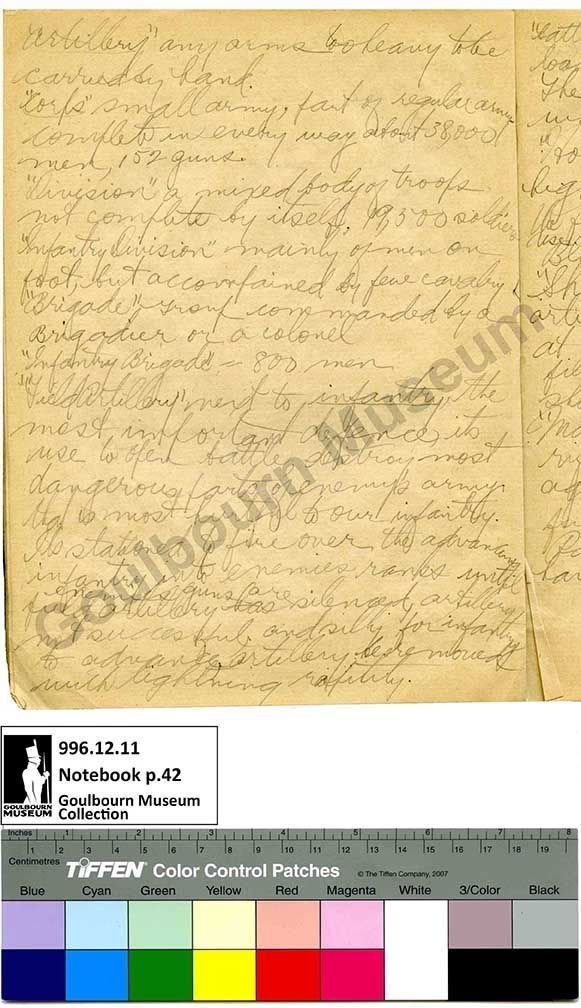 Artillery" any arms too heavy to be
carried by hand.
"Corps" small army, part of regular army
complete in every way about 38000
men, 152 guns.
"Division" a mixed body of troops
not complete by itself. 19,500 soldiers
"Infantry Division" mainly of men on
foot, but accompanied by few cavalry
"Brigade", group commanded by a
Brigadier or a colonel
"Infantry Brigade" = 800 men
"Field Artillery", next to infantry, the
most important defence, its
use to open battle, destroy most
dangerous part of enemy's army
is most to our infantry.
Is stationed to fire over the advancing
infantry into enemies ranks until
enemies guns are
artillery silenced, artillery
successful, and for infantry
to advance artillery be removed
with lightning rapidity.
Goulbourn Museum
996.12.11
Notebook p.42
Goulbourn Museum
Collection
GOULBOURN
MUSEUM
Inches 1 2 3 4 5 6 7 8
Centimetres 1 2 3 4 5 6 7 8 9 10 11 12 13 14 15 16 17 18 19
TIFFEN Color Control Patches © The Tiffen Company, 2007
Blue Cyan Green Yellow Red Magenta White 3/Color Black